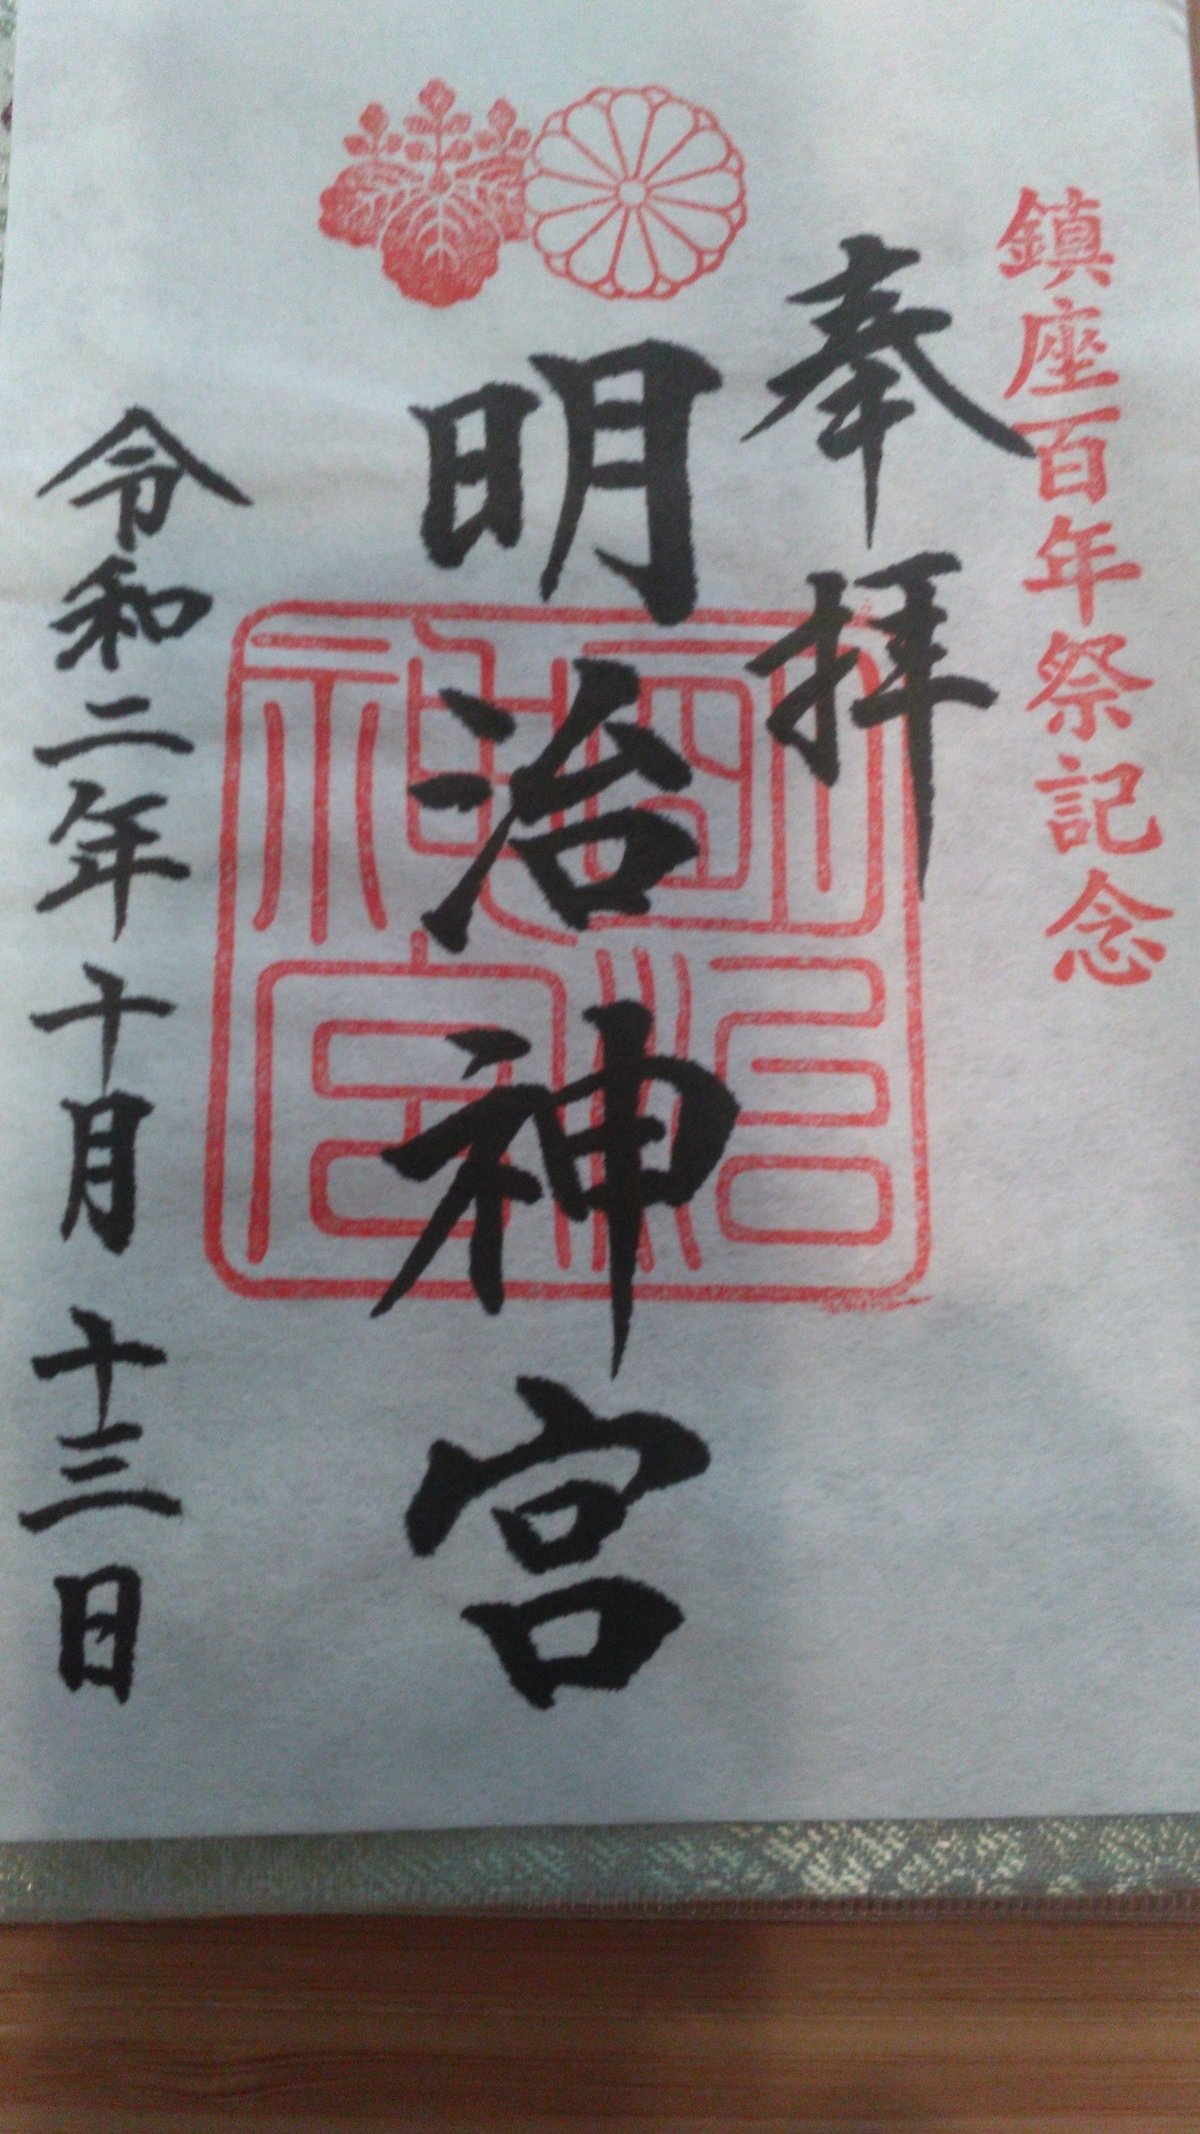 鎮座百年祭記念
奉拝
明治神宮
明治神宮
令和二年十月十三日